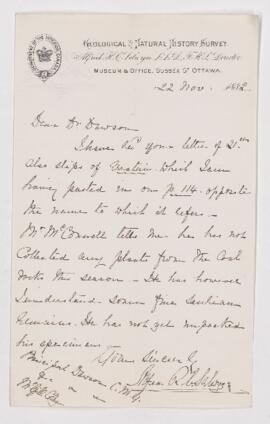 GEOLOGICAL & NATURAL HISTORY SURVEY.
Alfred R. C. Selwyn L.L.D., F.R.S., Director
MUSEUM & OFFICE, SUSSEX ST OTTAWA.
22 Nov. 1882
Dear Dr Dawson
I have recd your letter of 21st
also slips of which I am
having pasted in on p. 114 opposite
the name to which it refers -
Mr McConnell tells me he has not
collected any plants from the Coal
rocks this season - He has however
I understand some from
He has not yet unpacked
his specimens
Yours sincerely
Alfred R. C. Selwyn
Principal Dawson C.M.G.